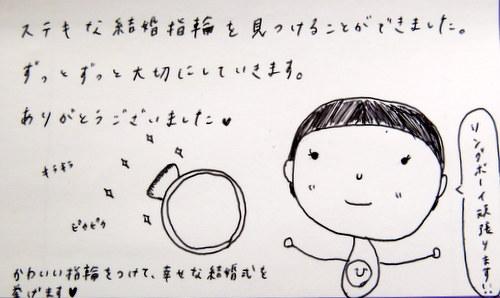 ステキな結婚指輪を見つけることができました。
ずっとずっと大切にしていきます。
ありがとうございました♥
キラキラ
ピカピカ
リングボーイ頑張ります!!
ひ
かわいい指輪をつけて、幸せな結婚式を
挙げます♥